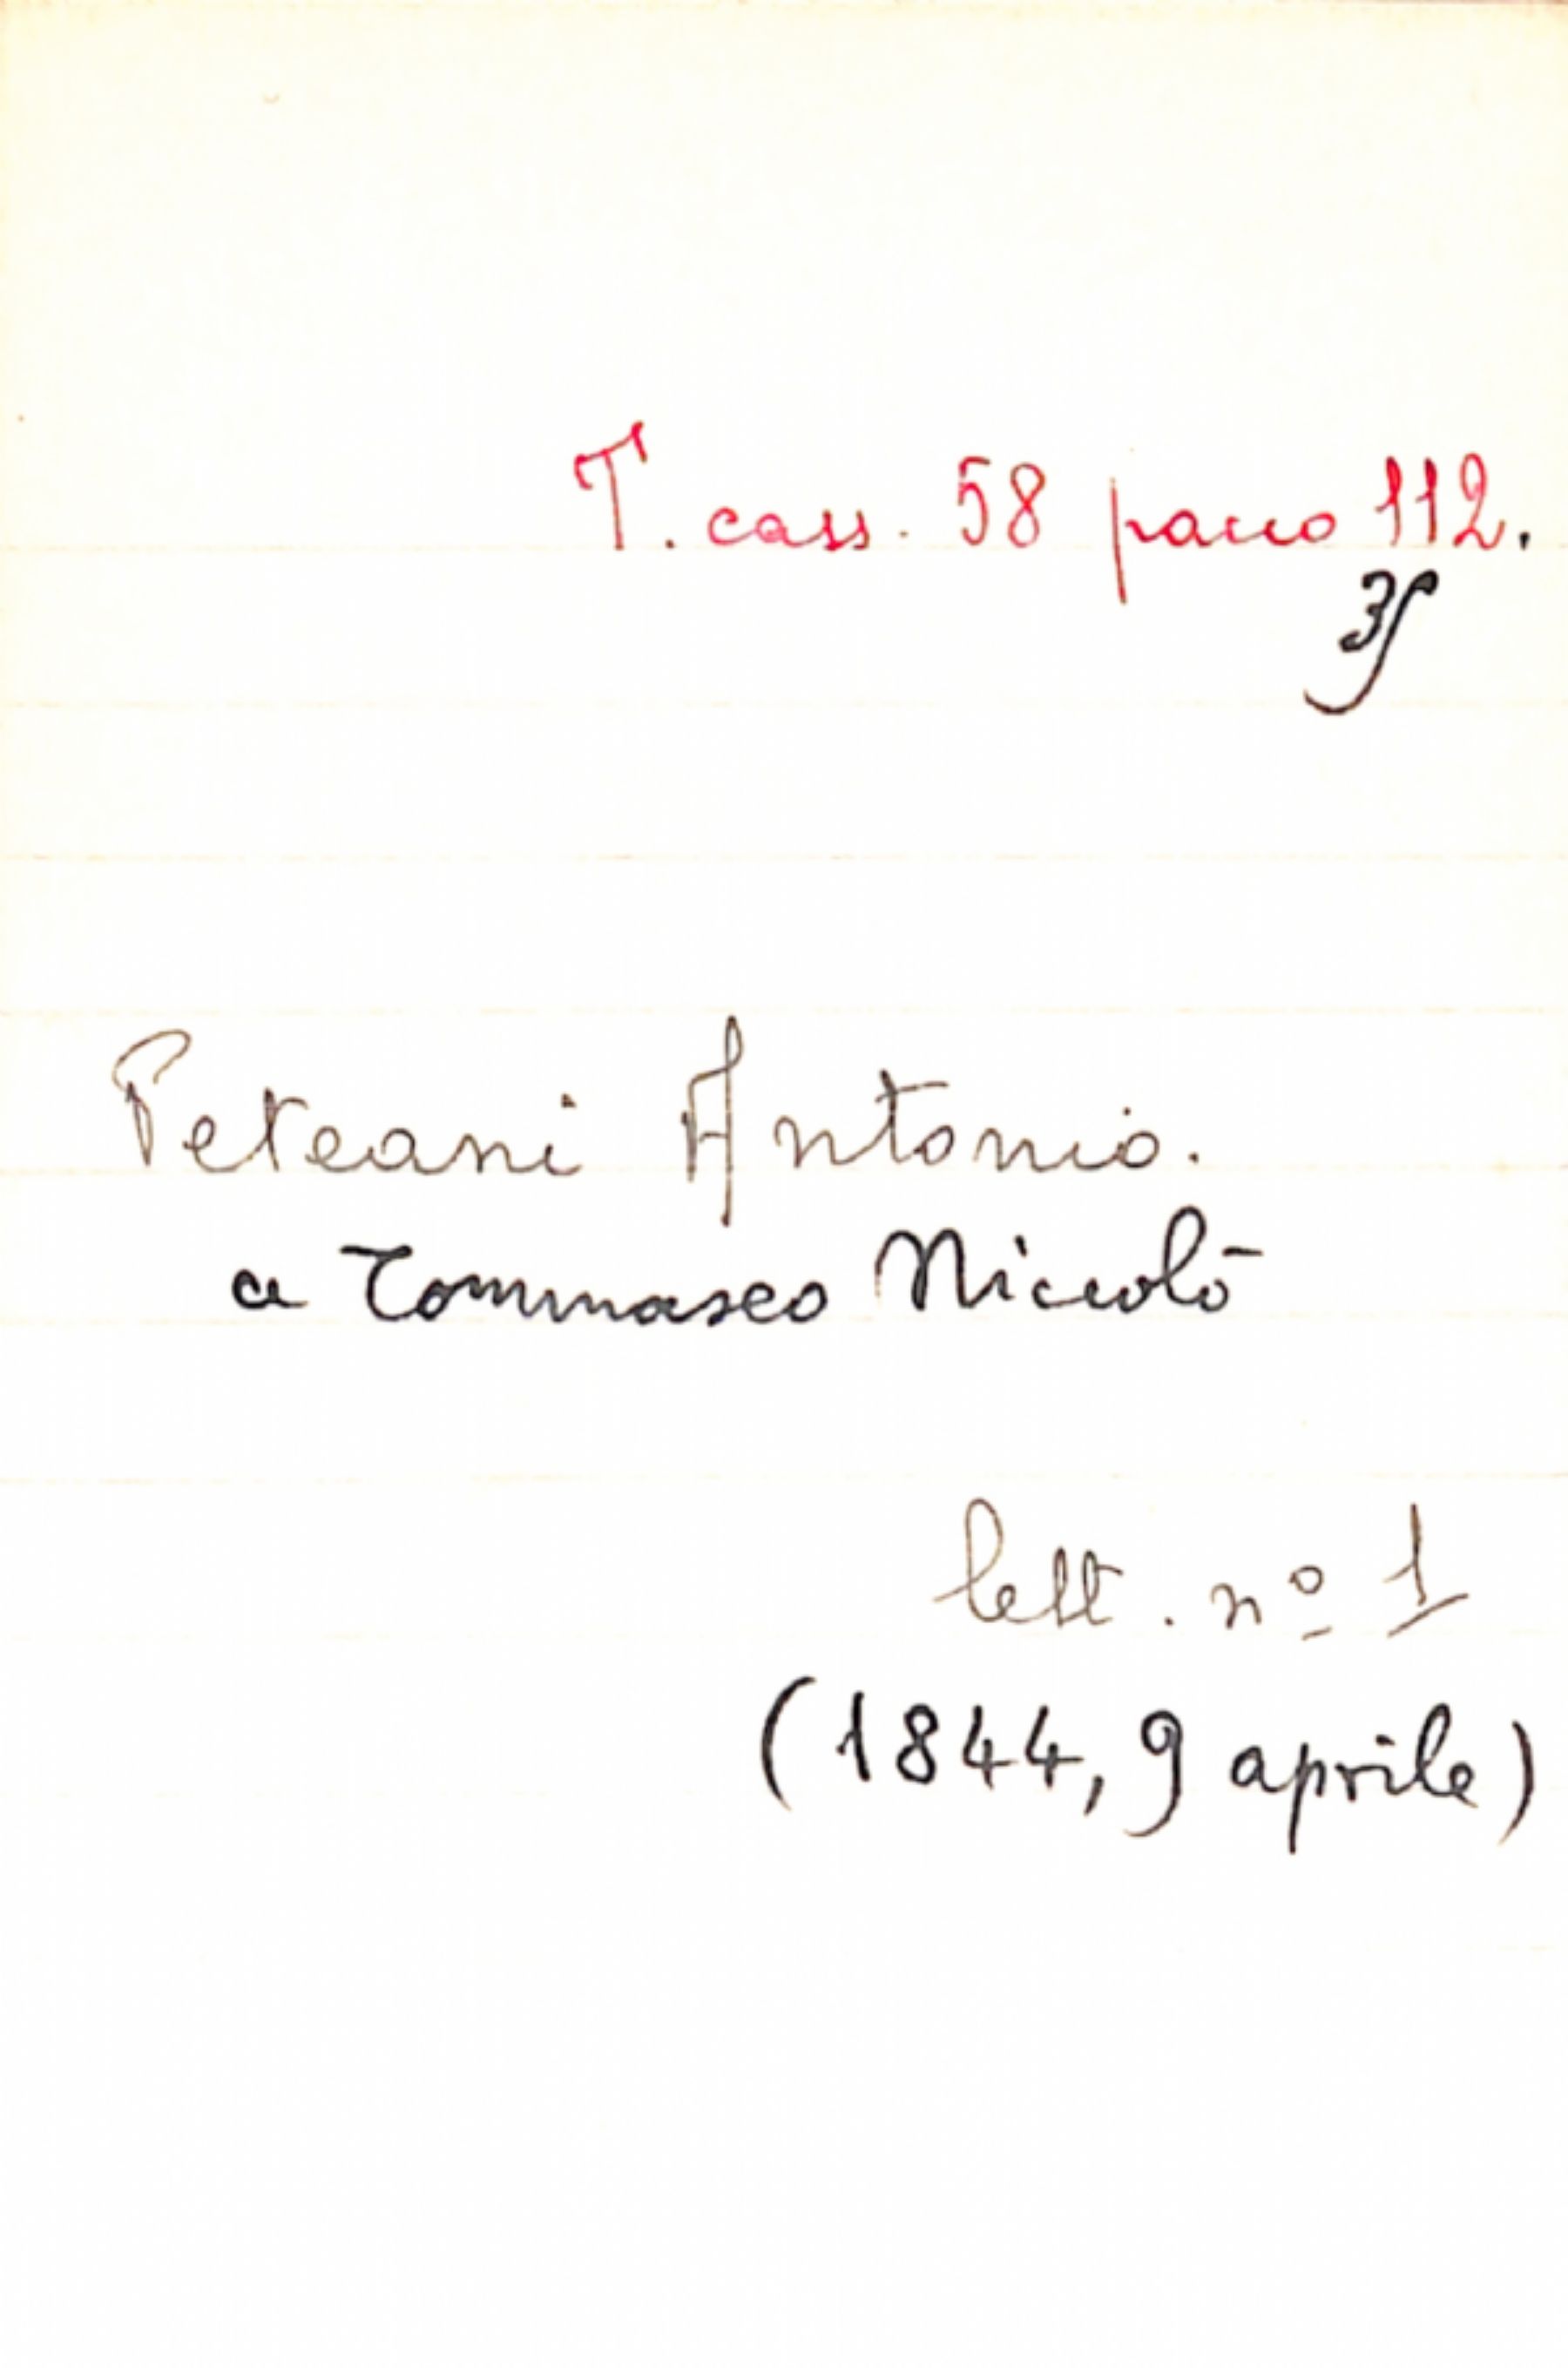 T. cass. 58 pacco 112.
Peteani Antonio.
a Tommaseo Niccolò
lett. nº 1
(1844, 9 aprile)